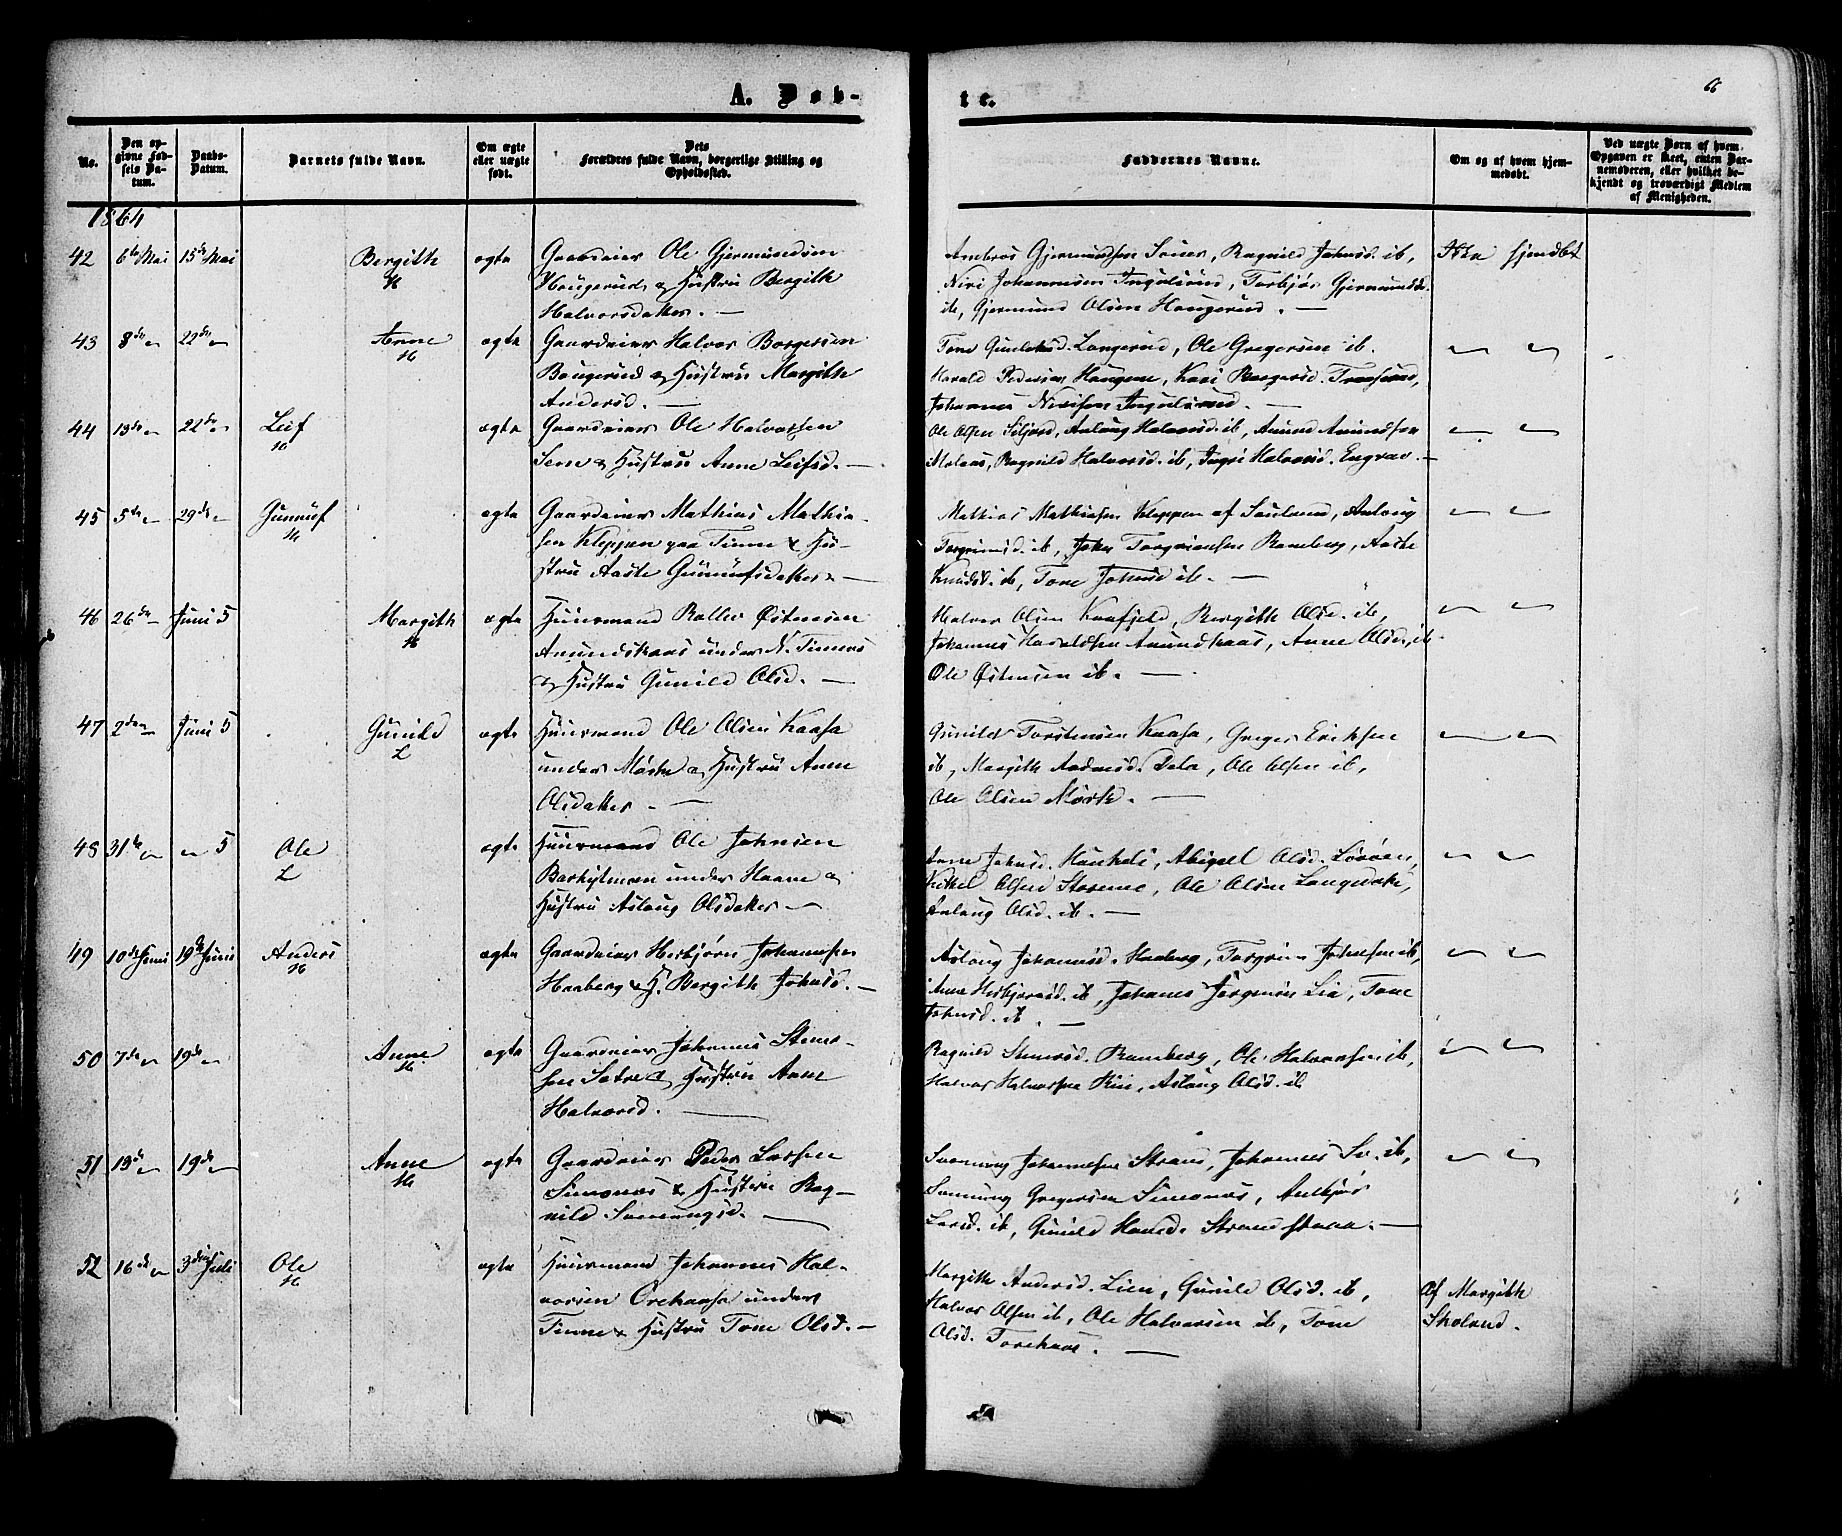 66
A. Døb-
te.
No.
Den op-
givne Fød-
sels Da-
tum.
Daabs-
Datum.
Barnets fulde Navn.
Om ægte
eller uægte
født.
Dets
Forældres fulde Navn, borgerlige Stilling og
Opholdssted.
Faddernes Navne.
Om og af hvem hjem-
medøbt.
Ved uægte Børn af hvem
Opgaven er skeet, enten Bar-
nemoderen, eller hvilket be-
kjendt og troværdigt Medlem
af Menigheden.
1864
42 6te Mai 15de Mai Bergith ægte Gaardeier Ole Gjermundsen
H Haugerud & Hustru Bergith
Halvorsdatter. —
Ambros Gjermundsen Ragnild Johnsd. ib, Ikke hjmdbt
Johannesen Ingulsrud, Torbjør Gjermundsd.
ib, Gjermund Olsen Haugerud. —
43 8de 22de Anne ægte Gaardeier Halvor Borgersen
H Bougerud & Hustru Margith
Andersd. —
Tone Gunleksd. Langerud, Ole Gregersen ib.
Harald Pedersen Haugene, Kari Borgersd.
Johannes Ingulsrud. —
44 13de 22de Leif ægte Gaardeier Ole Halvorsen
H Sem & Hustru Anne Leifsd. —
Ole Olsen Siljord, Aslaug Halvorsd. ib, Amund Amundsen
Ragnild Halvorsd. ib, Ingri Halvorsd. Engrav —
45 5te 29de Gunnuf ægte Gaardeier Mathias Mathia-
H sen Kleppen paa Tinne & Hu-
stru Aaste Gunnufsdatter —
Mathias Mathiasen Kleppen af Sauland, Aslaug
Torgrimsd. ib, John Torgrimsen Ramberg, Aaste
Knudsd. ib, Tone Johnsd ib. —
46 26de Juni 5 Margith ægte Huusmand Østensen
H Amundskaas under N. Tinnes
& Hustru Gunild Olsd. —
Halvor Olsen Kaafjeld, Bergith Olsd. ib,
Johannes Haraldsen Amundkaas, Anne Olsd. ib
Ole Østensen ib. —
47 2den Juni 5 Gunild ægte Huusmand Ole Olsen Kaasa
L under Mørk & Hustru Anne
Olsdatter. —
Gunild Torstensen Kaasa, Greger Eriksen
ib, Margith Andersd. Dala, Ole Olsen ib,
Ole Olsen Mørk. —
48 31te 5 Ole ægte Huusmand Ole Johnsen
L under Haave &
Hustru Aslaug Olsdatter —
Anne Johnsd. Abigael Olsd.
Kittel Olsen Ole Olsen
Aslaug Olsd. ib. —
49 10de Juni 19de Juni Anders ægte Gaardeier Herbjørn Johannesen
H Haaberg & H. Bergith Johnsd. —
Aslaug Johannesd. Haaberg, Torgrim Johnsen ib,
Anne Herbjørnsd. ib, Johanes Jørgensen Lia, Tone
Johnsd. ib. —
50 7de 19de Anne ægte Gaardeier Johannes Stener-
H sen Sætre & Hustru Anne
Halvorsd. —
Ragnild Stenersd. Ramberg, Ole Halvorsen ib,
Halvor Halvorsen Aslaug Olsd. ib
51 13de 19de Anne ægte Gaardeier Peder Larsen
H Simones & Hustru Rag-
nild Sveinungsd. —
Sveinung Johannesen Strand, Johannes Sv. ib,
Sveinung Gregersen Simones, Anbjør
Larsd. ib, Gunild Hansd.
52 16de 3die Juli Ole ægte Huusmand Johannes Hal-
H vorsen Orekaasa under
Tinne & Hustru Tone Olsd. —
Margith Andersd. Lien, Gunild Olsd. ib, Af Margith
Halvor Olsen ib, Ole Halvorsen ib, Tone Skoland.
Olsd. Torekaas. —